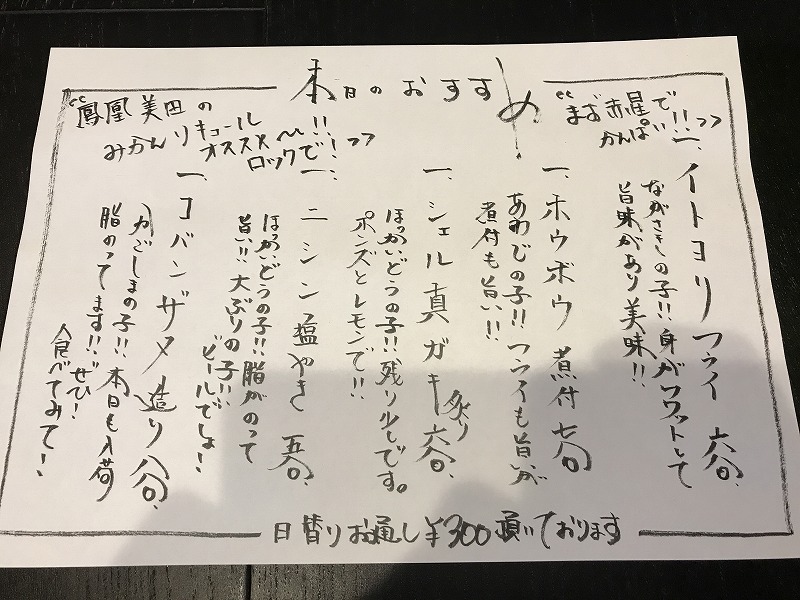 本日のおすすめ
“まず赤星で
かんぱい!!”
“鳳凰美田の
みかんリキュール
オススメ〜!!
ロックで!!”
一、イトヨリフライ 六〇〇.
ながさきの子!! 身がフワッとして
旨味があり美味!!
一、ホウボウ 煮付 七〇〇
あわじの子!! フライも旨いが
煮付も旨い!!
一、シェル真ガキ 炙り 六〇〇.
ほっかいどうの子!! 残り少しです。
ポンズとレモンで!!
一、ニシン塩やき 五〇〇.
ほっかいどうの子!! 脂がのって
旨い!! 大ぶりの子!!
ビールでしょ!
一、コバンザメ造り 八〇〇.
かごしまの子!! 本日も入荷
脂のってます!! ぜひ!
食べてみて!
日替りお通し¥300頂いております